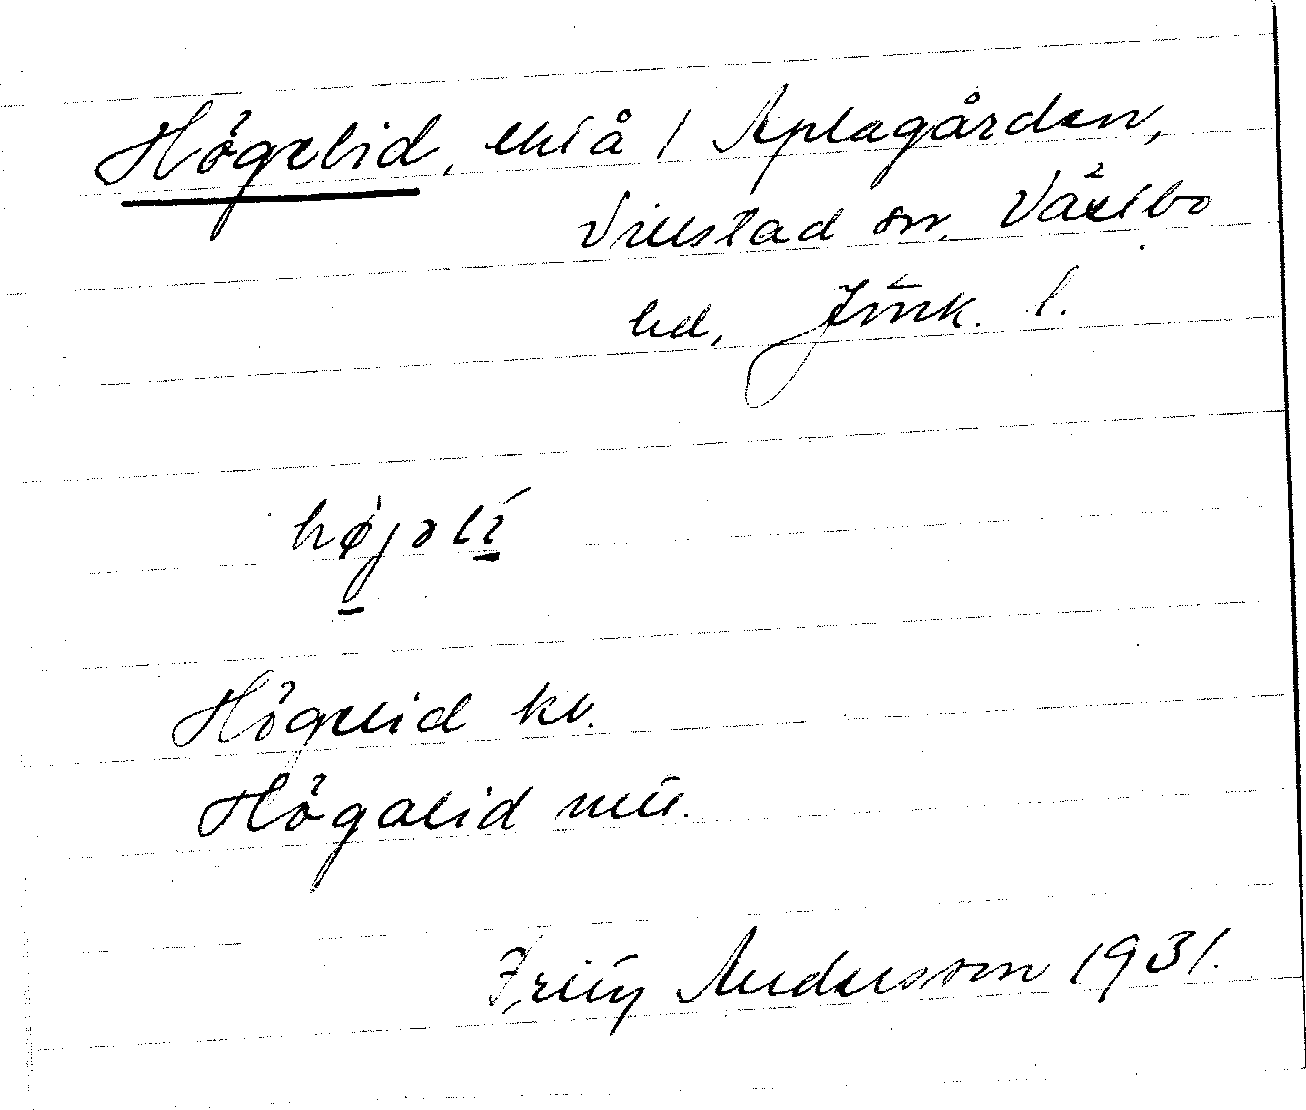 Högelid, i Aplagården,
Villstad sn. Västbo
hd, Jönk. l.
højəlí
Högelid kv.
Högalid
Fritz Andersson 1931.